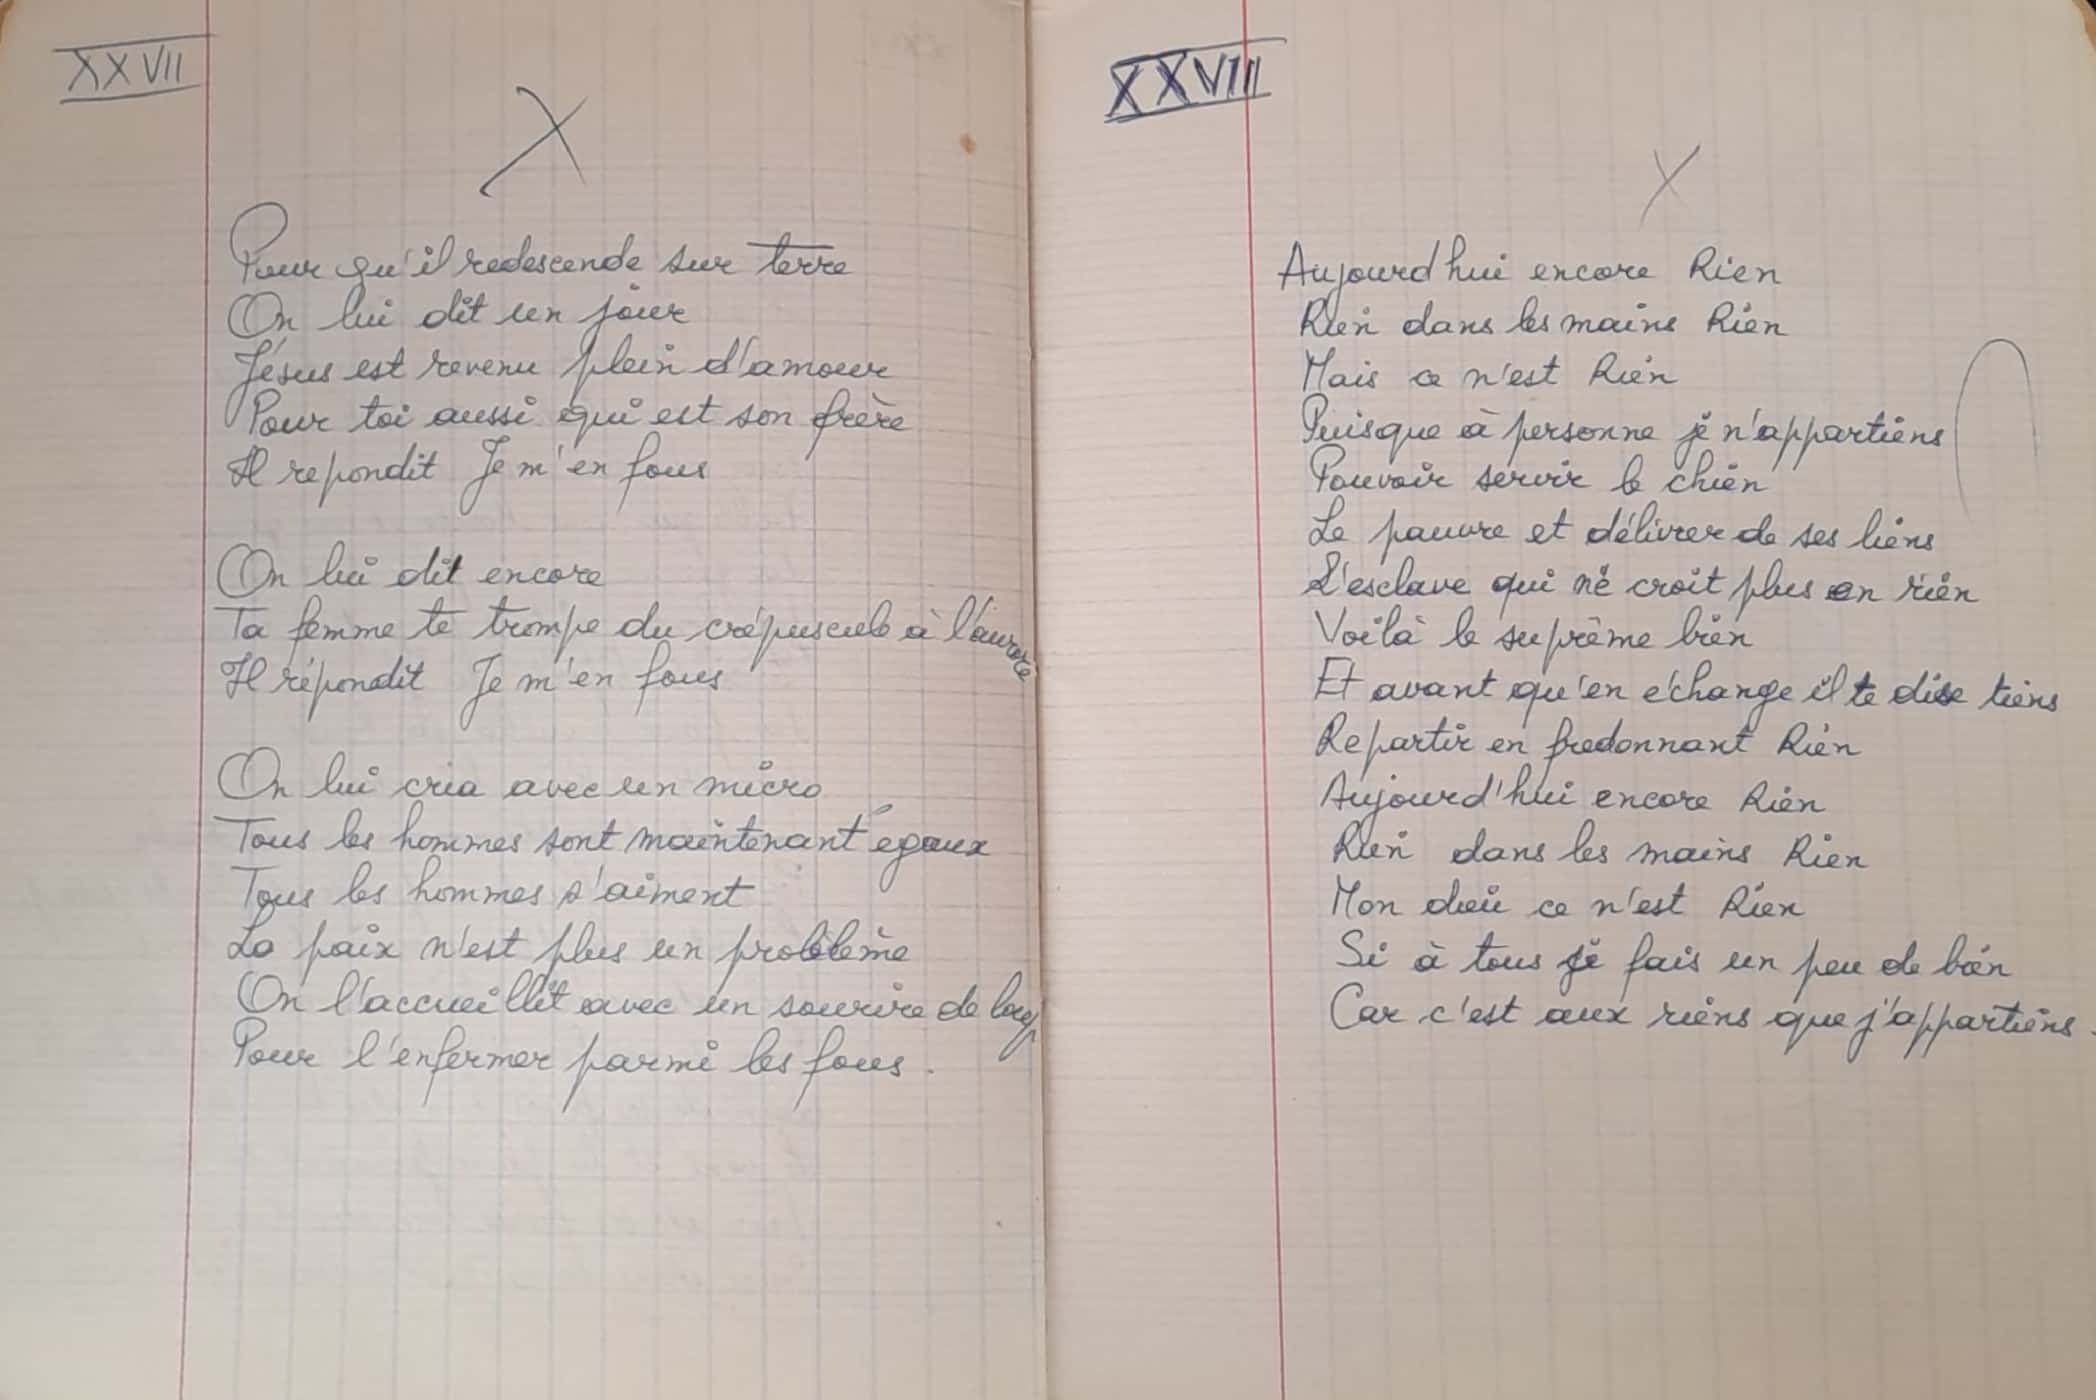 XXVII
X
Pour qu'il redescende sur terre
On lui dit un jour
Jésus est revenu plein d'amour
Pour toi aussi qui est son frère
Il repondit Je m'en fous
On lui dit encore
Ta femme te trompe du crépuscule à l'aurore
Il répondit Je m'en fous
On lui cria avec un micro
Tous les hommes sont maintenant égaux
Tous les hommes s'aiment
La paix n'est plus un problème
On l'accueillit avec un sourire de loup
Pour l'enfermer parmi les fous.
XXVIII
X
Aujourd'hui encore Rien
Rien dans les mains Rien
Mais ce n'est Rien
Puisque à personne je n'appartiens
Pouvoir servir le chien
Le pauvre et délivrer de ses liens
L'esclave qui ne croit plus en rien
Voilà le suprême bien
Et avant qu'en échange il te dise tiens
Repartir en fredonnant Rien
Aujourd'hui encore Rien
Rien dans les mains Rien
Mon dieu ce n'est Rien
Si à tous je fais un peu de bien
Car c'est aux riens que j'appartiens.